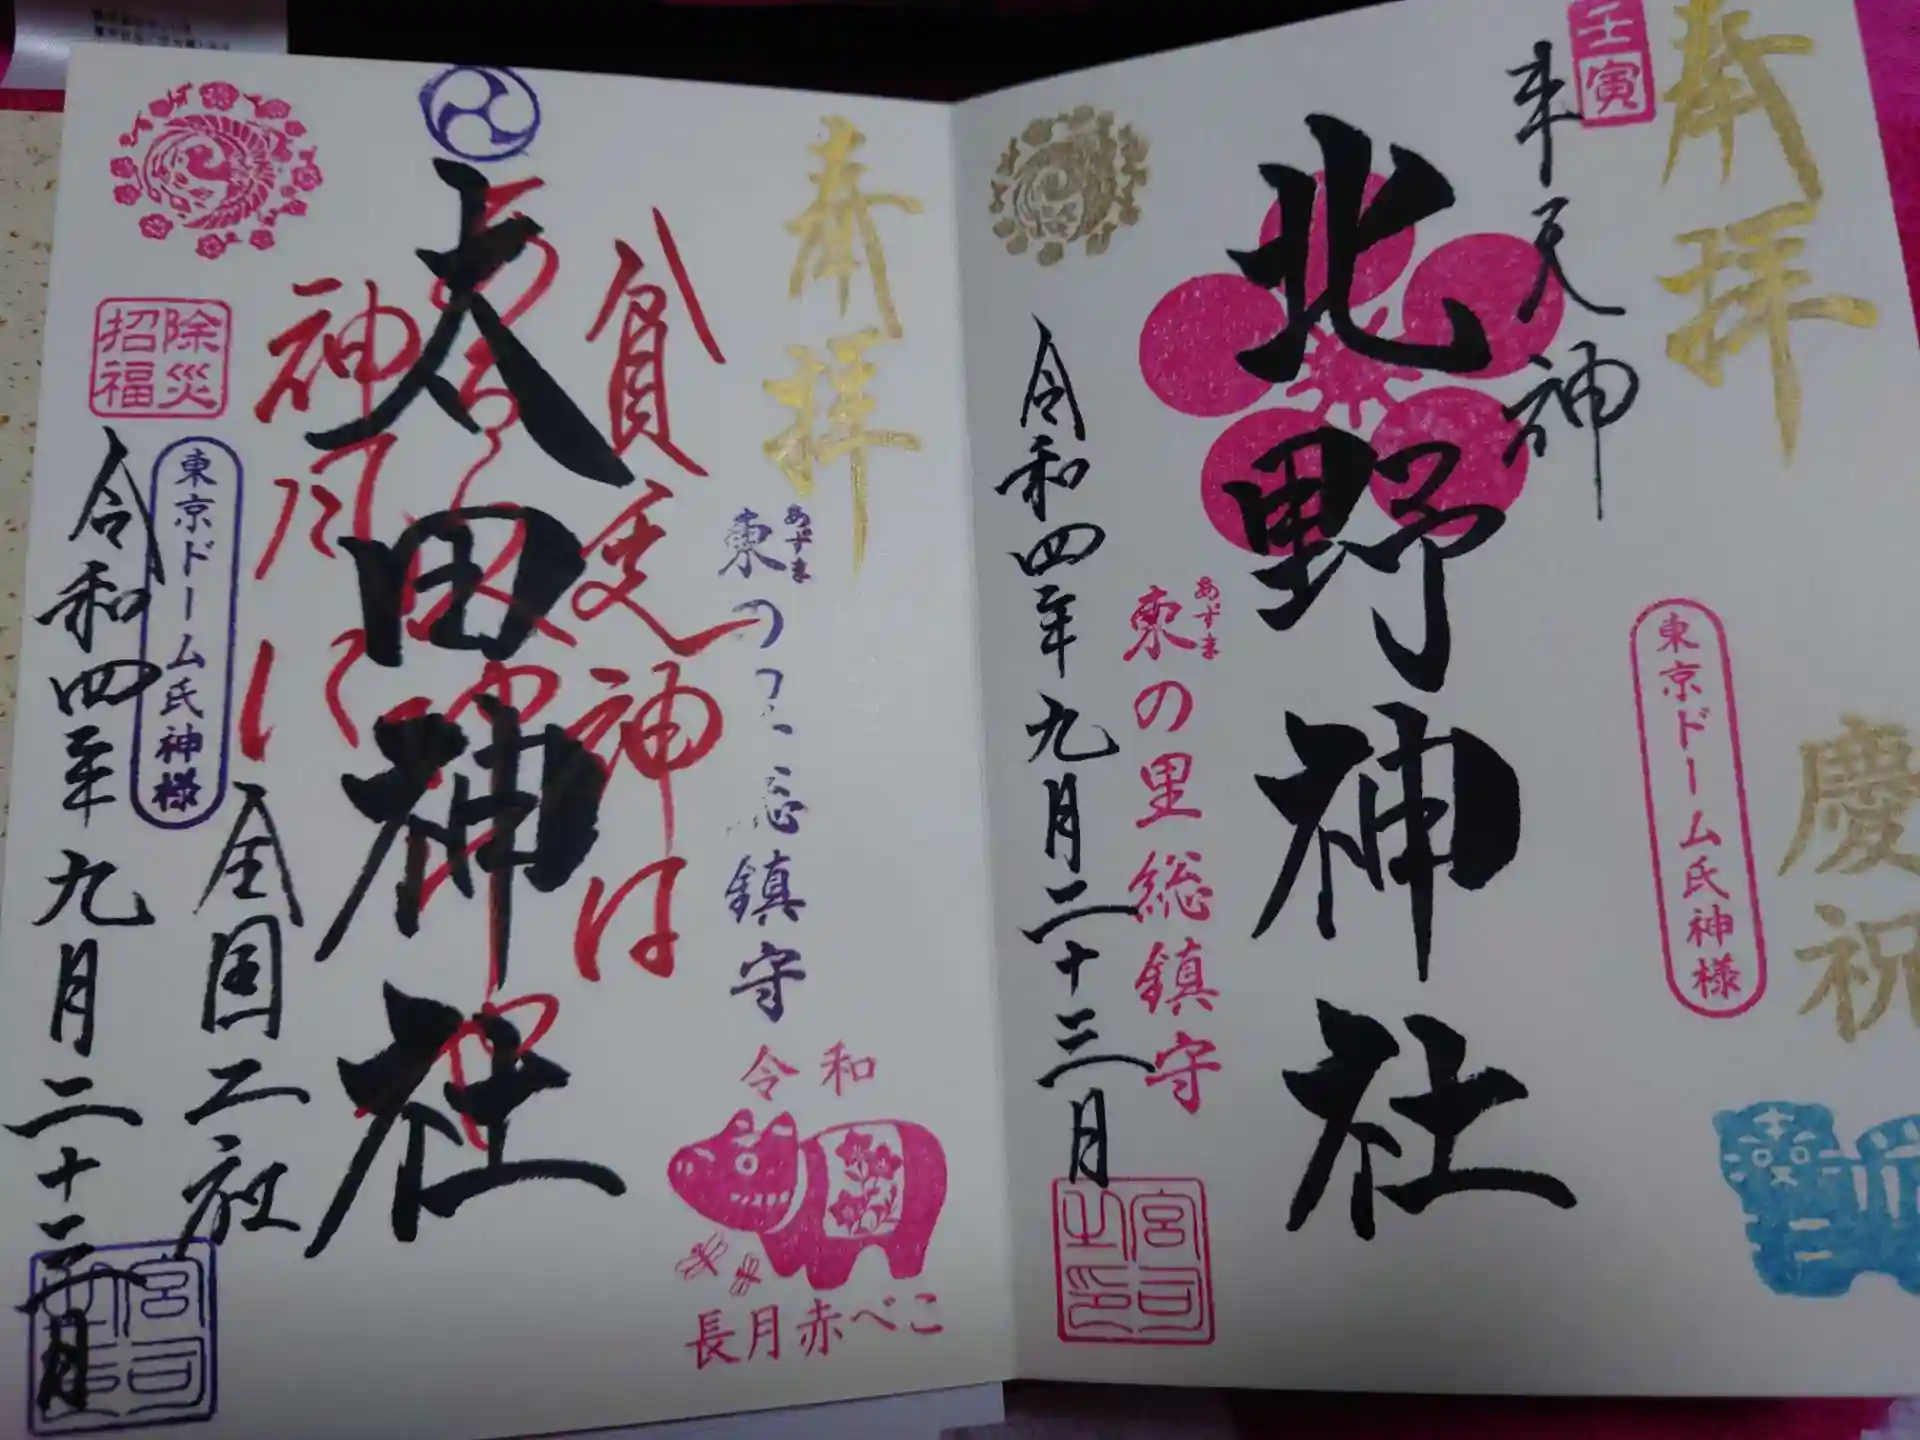 奉拝
壬寅
牛天神
北野神社
東京ドーム氏神様
慶祝
東の里総鎮守
あずま
令和四年九月二十三日
宮司之印
奉拝
東の
あずま
鎮守
貧乏神は
太田神社
神
全国二社
除災招福
東京ドーム氏神様
令和四年九月二十三日
宮司
令和
長月赤べこ